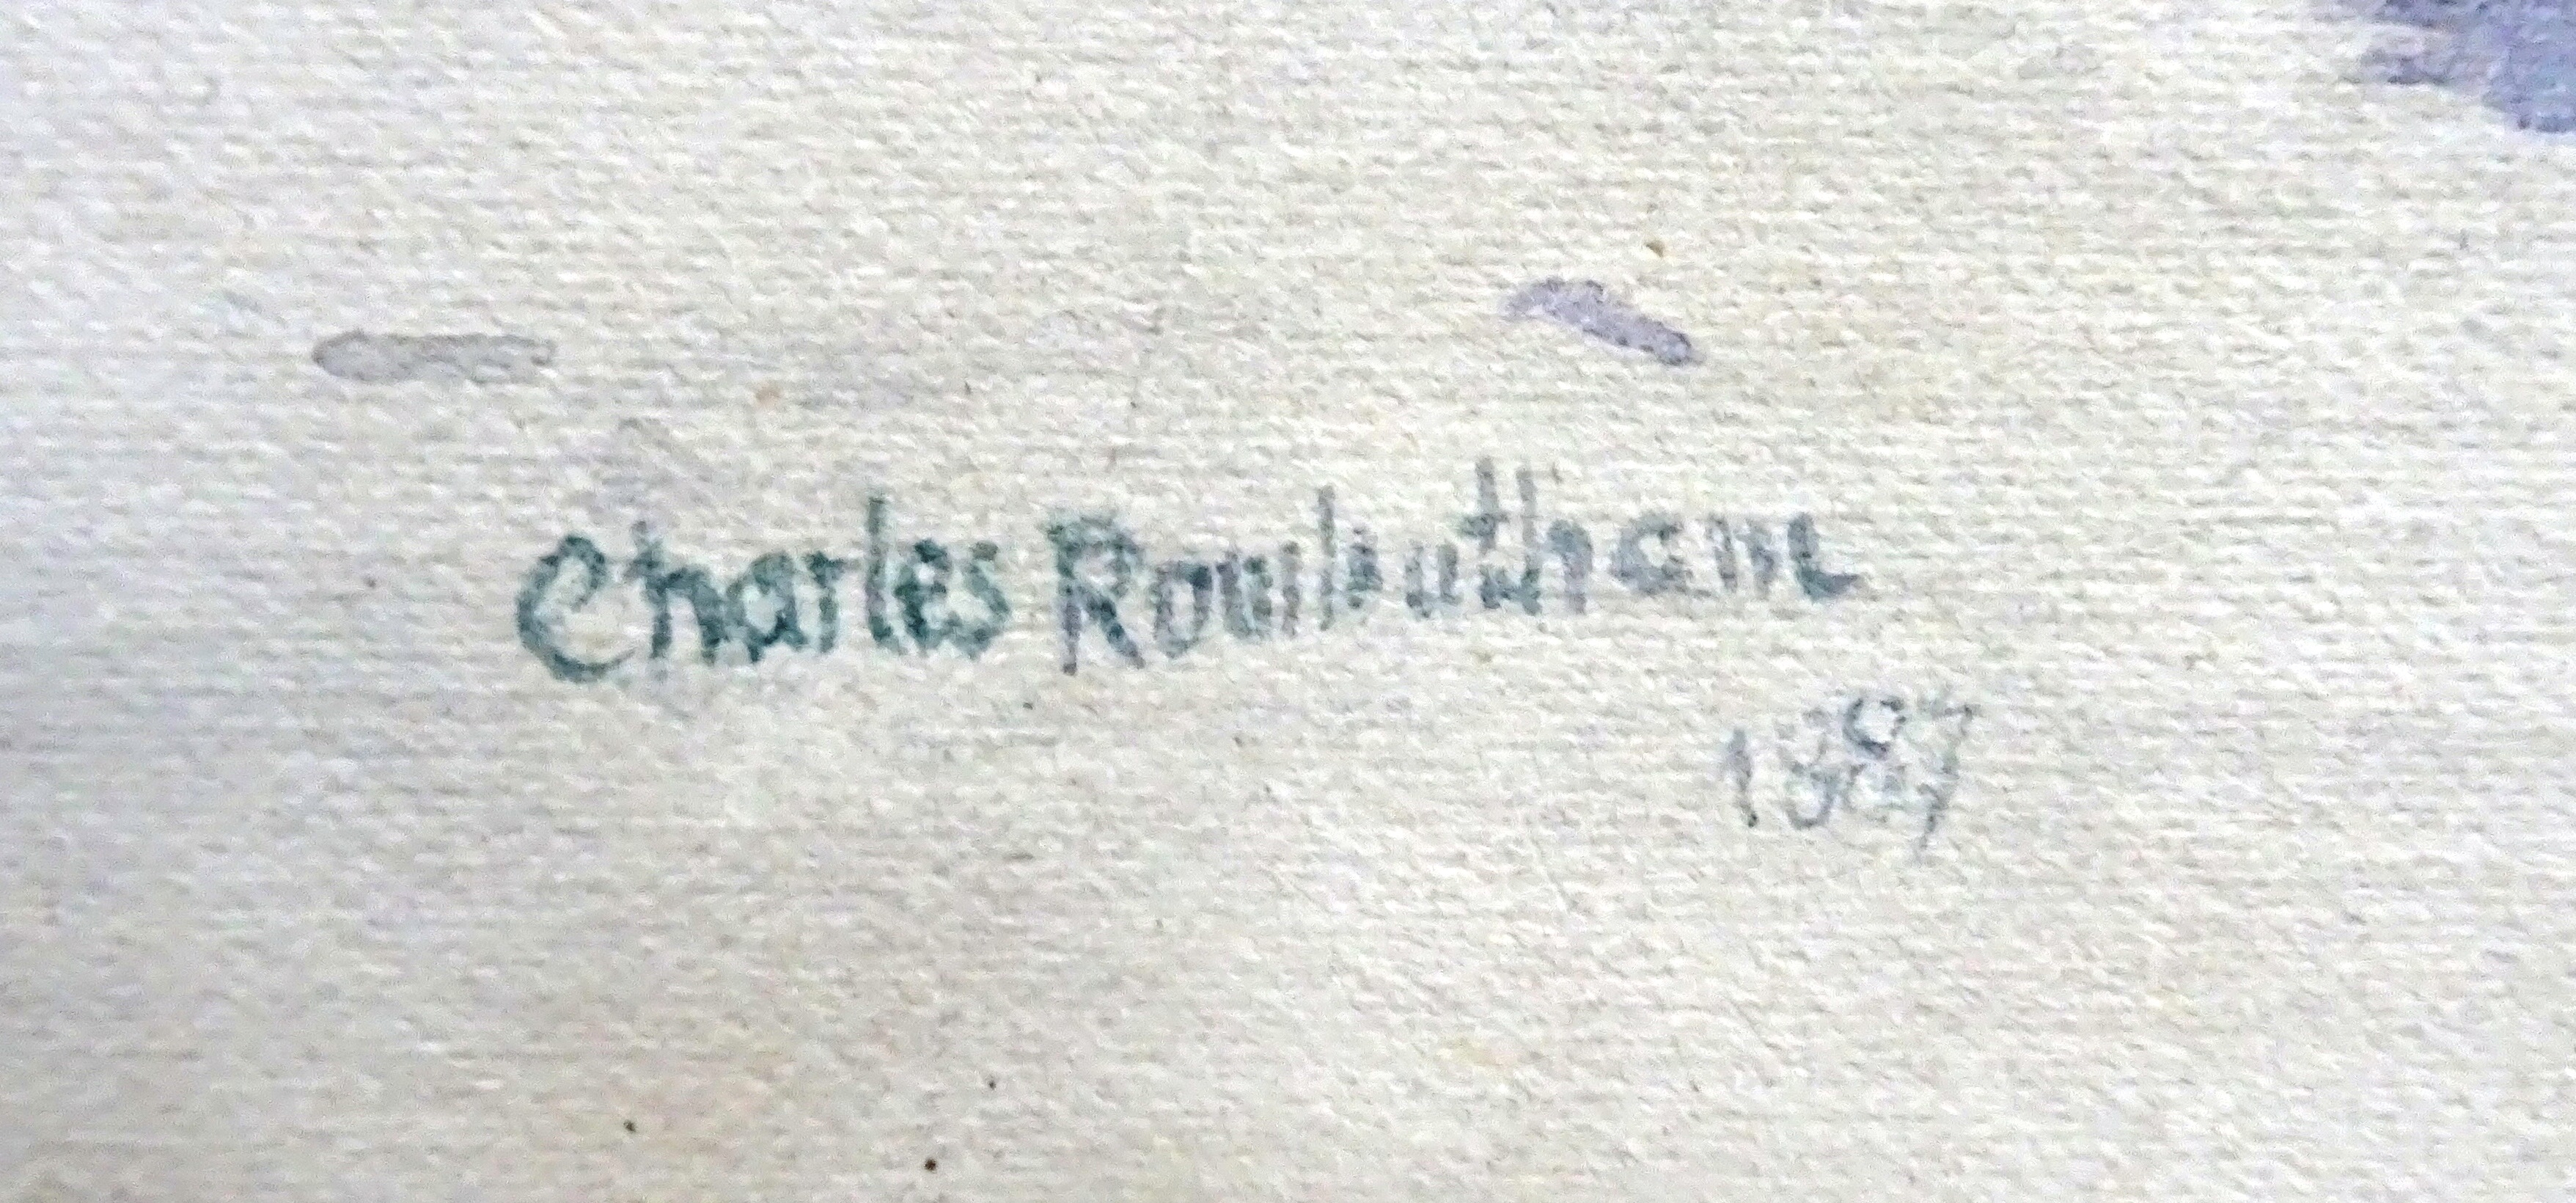 Charles Rowbotham
1887